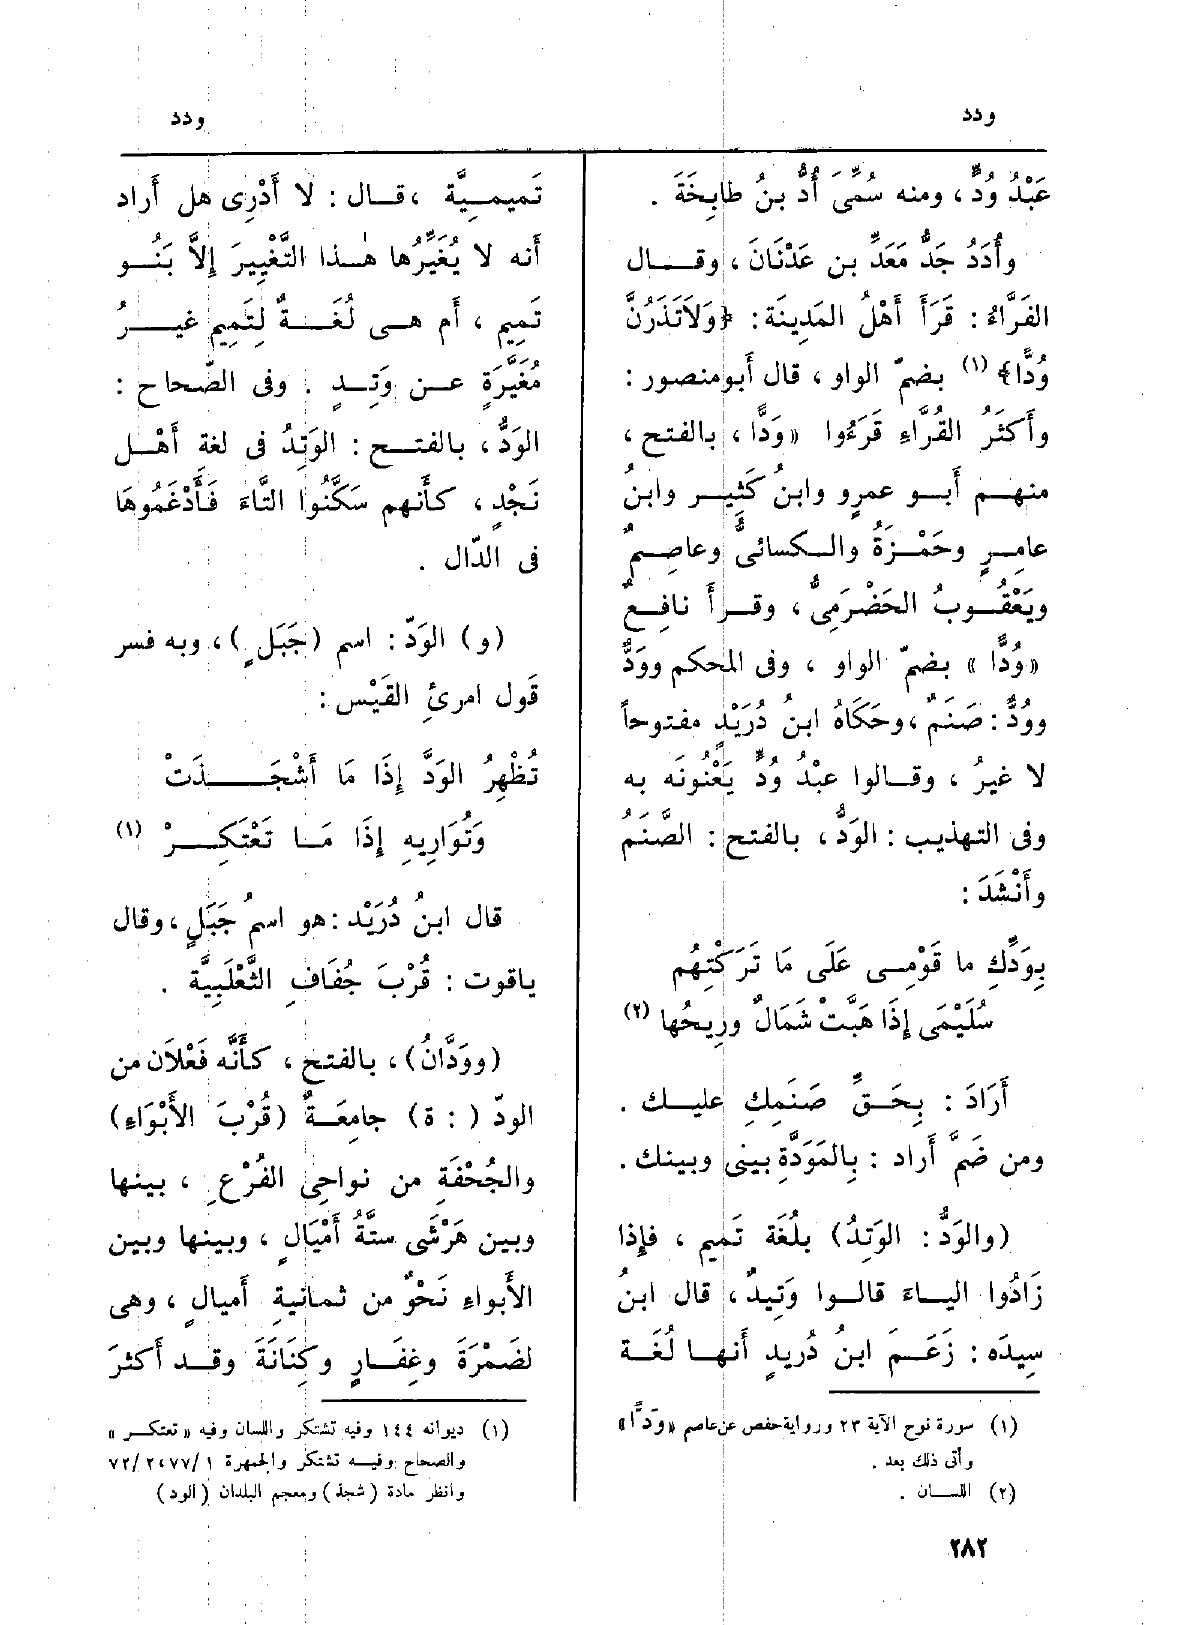 ودد
ودد
عَبْدُ وُدٍّ ، ومنه سُمِّىَ أُدُّ بنُ طابِخَةَ .
وأُدَدُ جَدُّ مَعَدِّ بن عَدْنَانَ ، وقــال
الفَرَّاءُ : قَرَأَ أَهْلُ المَدِينَة : ﴿وَلَاتَذَرُنَّ
وُدًّا﴾ (١) بضمّ الواو ، قال أَبومنصور :
وأَكثَرُ القُرَّاءِ قَرَءُوا «وَدًّا ، بالفتح ،
منهــم أَبــو عمرٍو وابنُ كَثِيــر وابنُ
عامِــرٍ وحَمْــزَةُ والــكسائىُّ وعاصِــمٌ
ويَعْقُــوبُ الحَضْرَمِىُّ ، وقــرأَ نافِــعٌ
«وُدًّا » بضمّ الواو ، وفى المحكم ووَدٌّ
ووُدٌّ : صَنَمٌ ،وحَكَاهُ ابنُ دُرَيْدٍ مفتوحاً
لا غيرُ ، وقــالوا عبْدُ وُدٍّ يَعْنُونَه به
وفى التهذيب : الوَدُّ ، بالفتح : الصَّنَمُ
وأَنْشَدَ :
بِوَدِّكِ ما قَوْمِــى عَلَى مَا تَرَكْتِهُم
سُلَيْمَى إِذَا هَبَّتْ شَمَالٌ ورِيحُها (٢)
أَرَادَ : بِحَــقِّ صَنَمِكِ عليــك .
ومن ضَمَّ أَراد : بِالمَوَدَّةِ بينى وبينك .
(والوَدُّ : الوَتِدُ) بلُغَة تَميم ، فإِذا
زَادُوا اليــاءَ قالــوا وَتِيدٌ ، قال ابنُ
سِيدَه : زَعَــمَ ابنُ دُريدٍ أَنهــا لُغَة
تَميمِــيَّة ، قــال : لا أَدْرِى هل أَراد
أَنه لا يُغَيِّرُها هٰــذا التَّغْيِيرَ إِلاَّ بَنُــو
تَمِيم ، أَم هــى لُغَــةٌ لِتَمِيمٍ غيــرُ
مُغَيَّرَةٍ عــن وَتِــدٍ . وفى الصّحاح :
الوَدُّ ، بالفتــح : الوَتِدُ فى لغة أَهْــلِ
نَجْدٍ ، كأَنهم سَكَّنُوا التَّاءَ فَأَدْغَمُوهَا
فى الدّال .
(و) الوَدّ : اسم (جَبَلٍ)، وبه فسر
قَول امرئِ القَيْس :
تُظْهِرُ الوَدَّ إِذَا مَا أَشْجَــذَتْ
وَتُوَارِيهِ إِذَا مَــا تَعْتَكِــرْ (١)
قال ابنُ دُرَيْد :هو اسمُ جَبَلٍ ،وقال
ياقوت : قُرْبَ جُفَافِ الثَّعْلَبِيَّة .
(ووَدَّانُ) ، بالفتح ، كأَنَّه فَعْلَان من
الودّ ( : ة) جامِعَــةٌ (قُرْبَ الأَبْوَاءِ)
والجُحْفَةِ من نواحِى الفُرْعِ ، بينها
وبين هَرْشَى ستَّةُ أَمْيَالٍ ، وبينها وبين
الأَبواءِ نَحْوٌ من ثمانية أَميالٍ ، وهى
لضَمْرَةَ وغِفَــارٍ وكِنَانَةَ وقــد أَكثَرَ
(١) سورة نوح الآية ٢٣ ورواية حفص عن عاصم «وَدًّا»
وأتى ذلك بعد .
(٢) اللســان .
(١) ديوانه ١٤٤ وفيه تشتكر واللسان وفيه « تعتكــر »
والصحاح وفيــه تشتكر والجمهرة ٧٢/٢٤٧٧/١
وانظر مادة (شجذ) ومعجم البلدان (الود)
٢٨٢